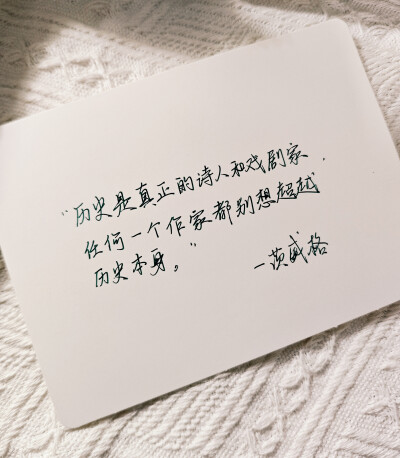 “历史是真正的诗人和戏剧家，
任何一个作家都别想超越
历史本身。”
—茨威格